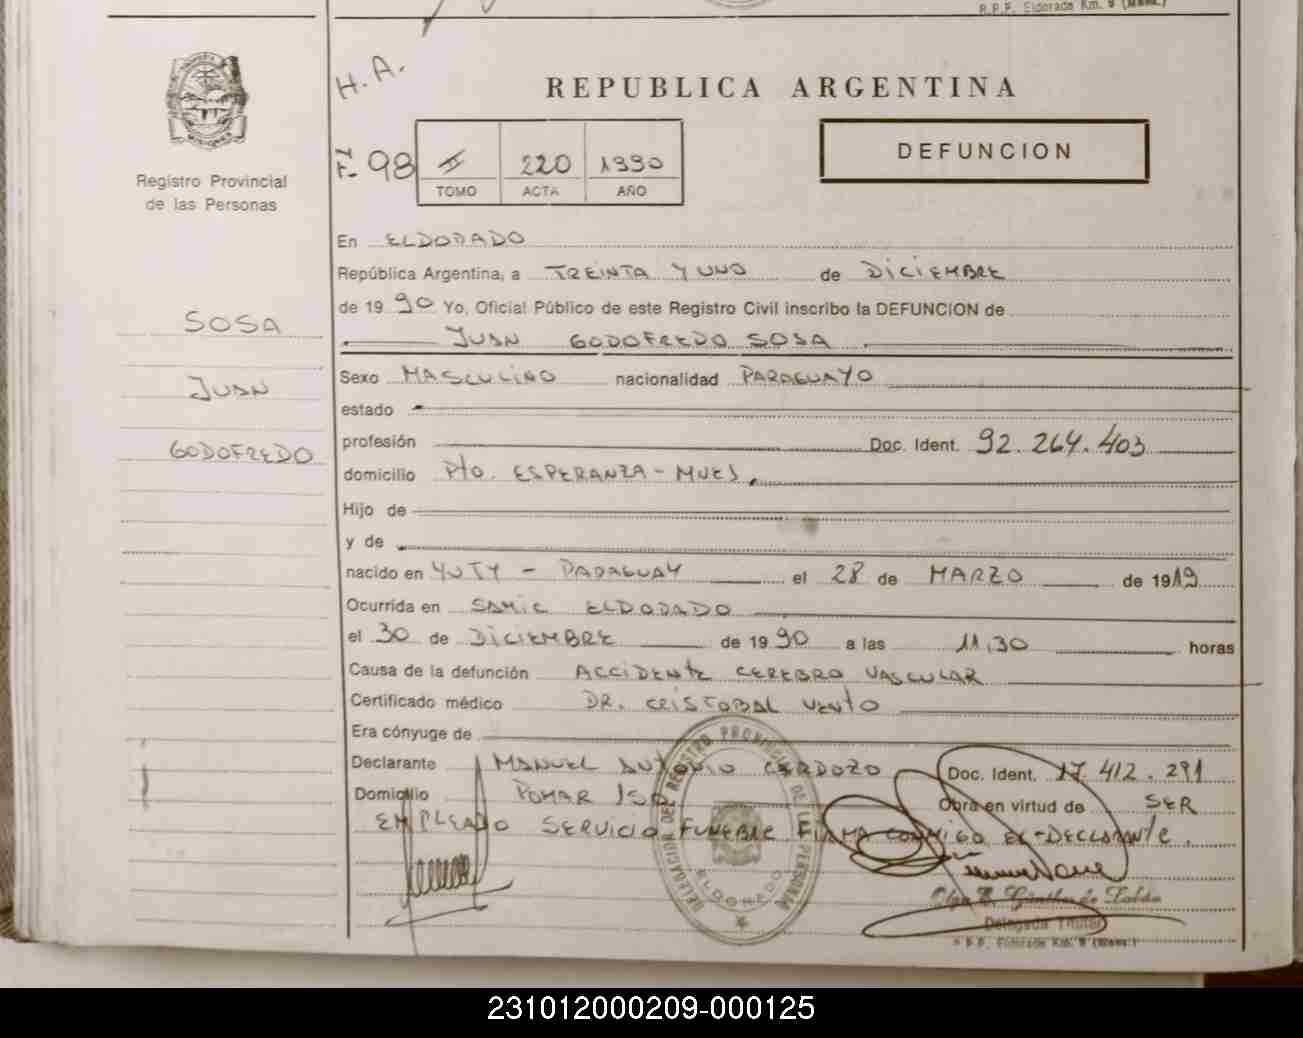 R.P.P. Eldorado Km. 9 (Mnes.)
H. A.
REPUBLICA ARGENTINA
Fº 98
II 220 1990
TOMO ACTA AÑO
DEFUNCION
Registro Provincial
de las Personas
SOSA
JUAN
GODOFREDO
En ELDORADO
República Argentina, a TREINTA Y UNO de DICIEMBRE
de 1990 Yo, Oficial Público de este Registro Civil inscribo la DEFUNCION de
JUAN GODOFREDO SOSA.
Sexo MASCULINO nacionalidad PARAGUAYO
estado
profesión Doc. Ident. 92.264.403
domicilio Pto. ESPERANZA - MNES.
Hijo de
y de
nacido en YUTY - PARAGUAY el 28 de MARZO de 1919
Ocurrida en SAMIC ELDORADO
el 30 de DICIEMBRE de 1990 a las 11,30 horas
Causa de la defunción ACCIDENTE CEREBRO VASCULAR
Certificado médico DR. CRISTOBAL VENTO
Era cónyuge de
Declarante MANUEL ANTONIO CERDOZO Doc. Ident. 17.412.291
Domicilio POMAR Obra en virtud de SER
EMPLEADO SERVICIO FUNEBRE FIRMA CONMIGO EL-DECLARANTE.
DELEGACION DEL REGISTRO PROVINCIAL DE LAS PERSONAS
ELDORADO
Delegada Titular
R.P.P. Eldorado Km. 9 (Mnes.)
231012000209-000125